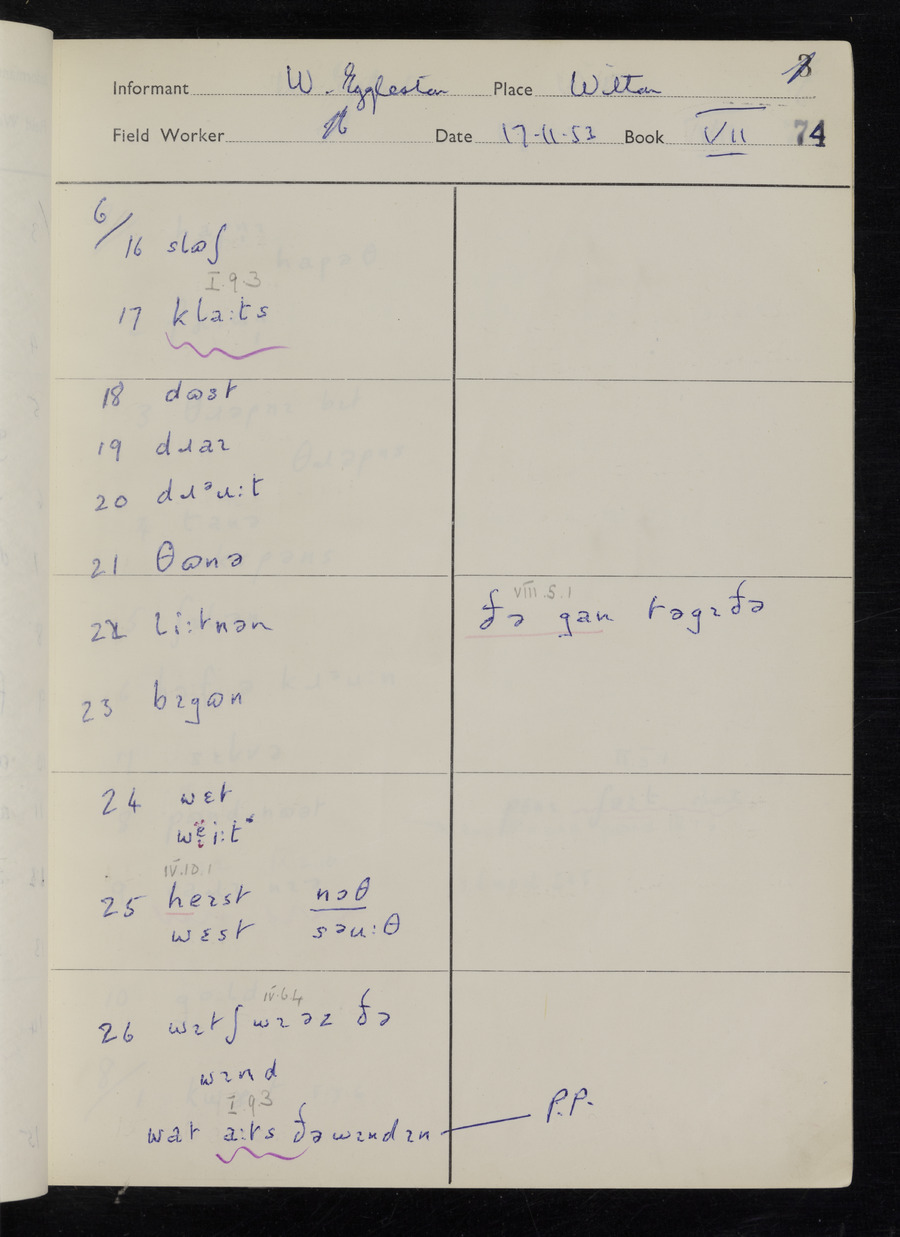 Informant W. Eggleston Place Wilton 3
Field Worker Date 17-11-53 Book VII 74
6/16 slɷʃ
I.9.3
17 kla:ts
18 dɷst
19 dɹaɪ
20 dɹᵊu:t
21 θɷnə
22 li:tnən
VIII.5.1
ðə gan təgɪðə
23 bɪgɷn
24 wɛt
IV.10.1
25 heɪst nəθ
wɛst səu:θ
IV.6.4
26 wɪtʃ wɪ əz ðə
wɪnd
I.9.3
wat a:ts ðə wɪndɪn P.P.